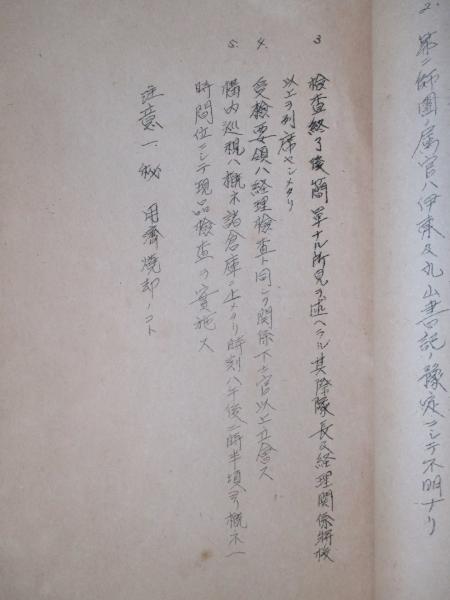 2. 第二師團属官ハ伊東及丸山書記ノ豫定ニシテ不明ナリ
3 檢査終了後簡單ナル所見ヲ述ヘラル其際隊長及経理関係將校
以上ヲ列席セシメタリ
4. 受檢要領ハ経理檢査ト同シク関係下士官以上立會ス
5. 構内巡視ハ概ネ諸倉庫ニ止メラ時刻ハ午後二時半頃ヨリ概ネ一
時間位ニシテ現品檢査ヲ實施ス
注意 一、秘 用濟焼却ノコト